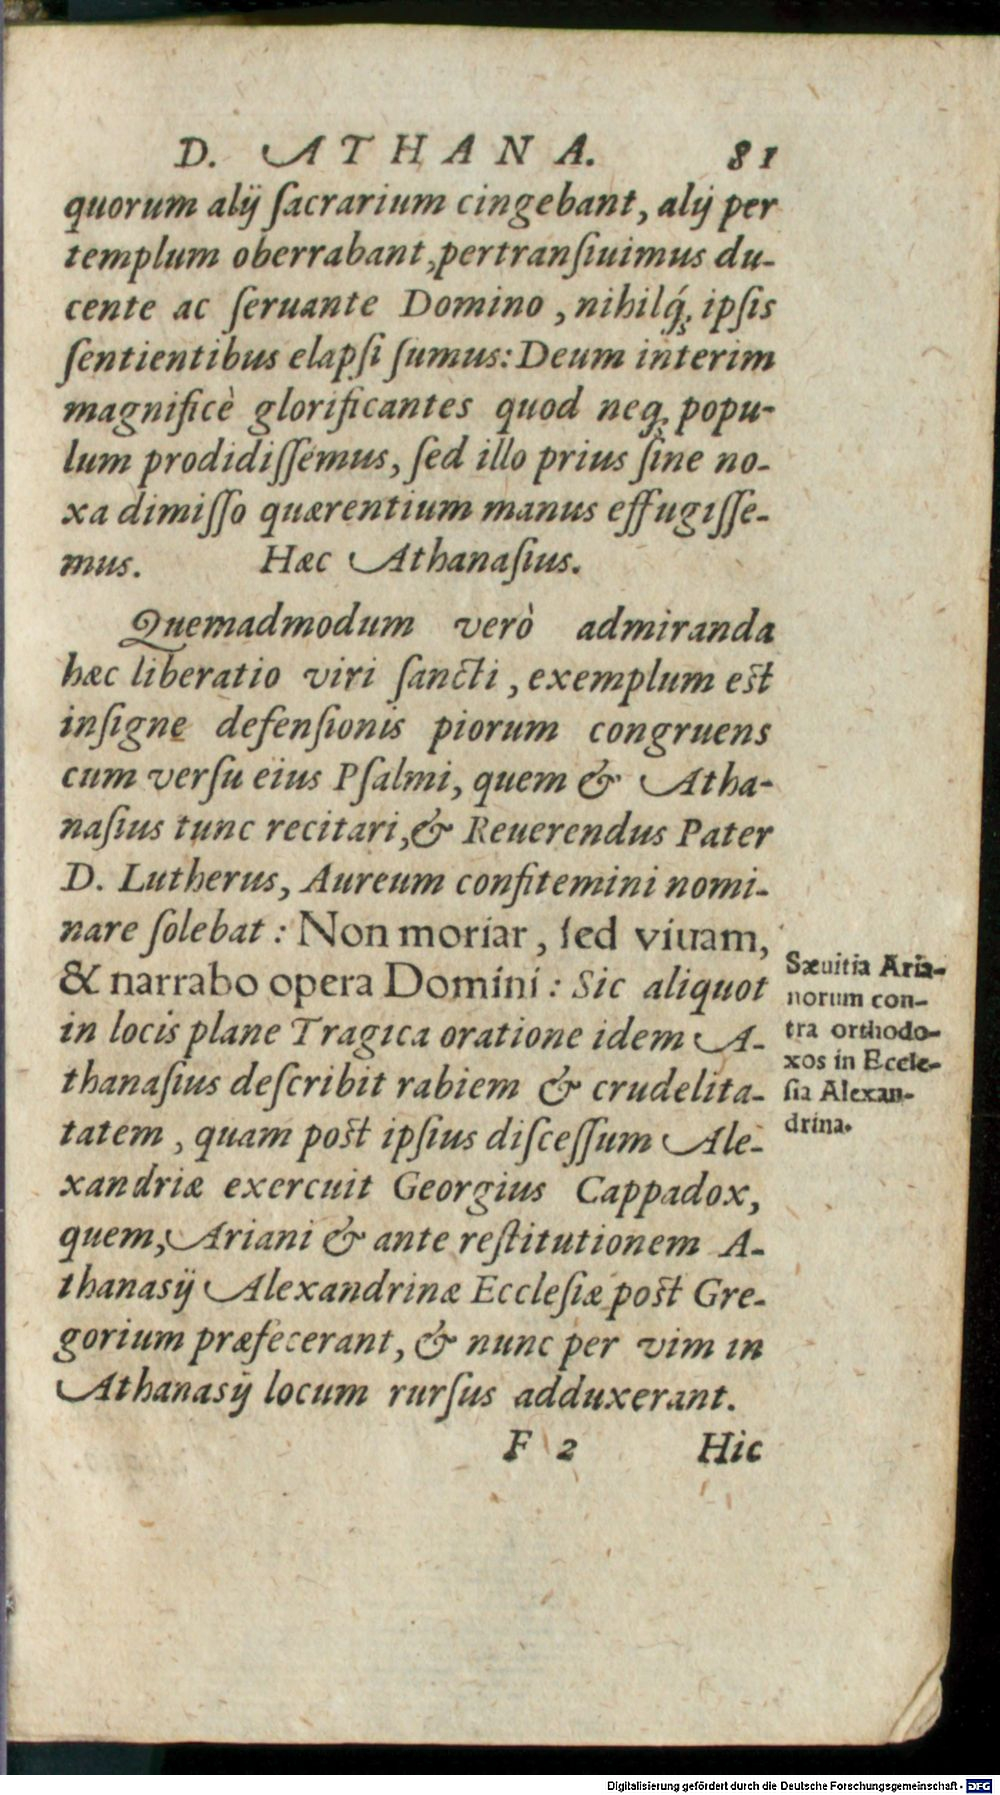 D. ATHANA. 81
quorum alij ſacrarium cingebant, alij per
templum oberrabant, pertranſiuimus du-
cente ac ſeruante Domino, nihilq́; ipſis
ſentientibus elapſi ſumus: Deum interim
magnificè glorificantes quod neq; popu-
lum prodidiſſemus, ſed illo prius ſine no-
xa dimiſſo quærentium manus effugiſſe-
mus. Hæc Athanaſius.
Quemadmodum verò admiranda
hæc liberatio viri ſancti, exemplum eſt
inſigne defenſionis piorum congruens
cum verſu eius Pſalmi, quem & Atha-
naſius tunc recitari, & Reuerendus Pater
D. Lutherus, Aureum confitemini nomi-
nare ſolebat: Non moriar, ſed viuam,
& narrabo opera Domini: Sic aliquot
in locis plane Tragica oratione idem A-
thanaſius deſcribit rabiem & crudelita-
tatem, quam poſt ipſius diſceſſum Ale-
xandriæ exercuit Georgius Cappadox,
quem, Ariani & ante reſtitutionem A-
thanasij Alexandrinæ Eccleſiæ poſt Gre-
gorium præfecerant, & nunc per vim in
Athanasij locum rurſus adduxerant.
F 2 Hic
Sæuitia Aria-
norum con-
tra orthodo-
xos in Eccle-
ſia Alexan-
drina.
Digitalisierung gefördert durch die Deutsche Forschungsgemeinschaft - DFG